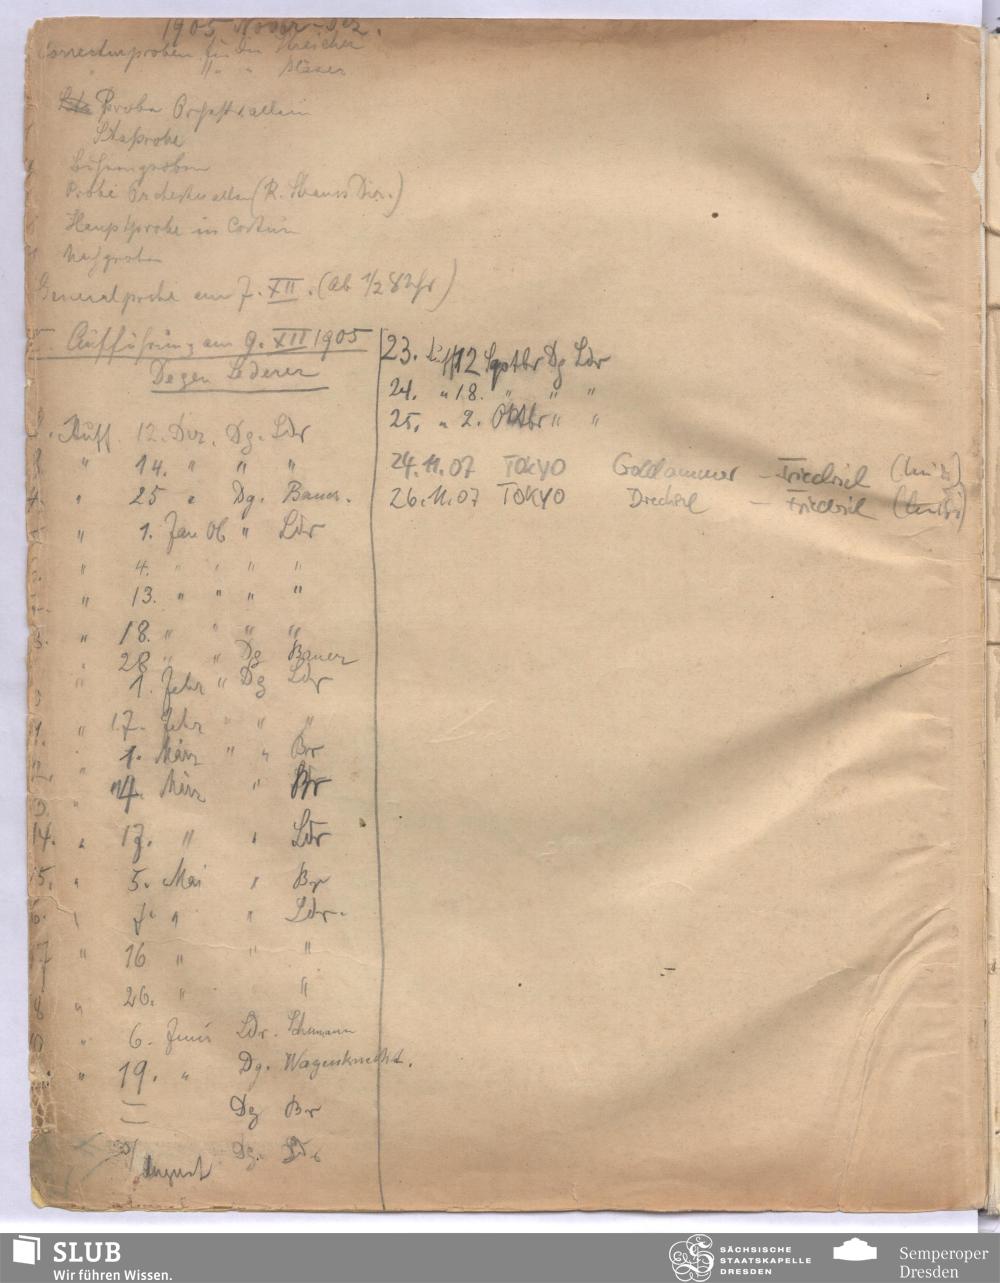 1905 Novbr - Dez.
Correcturproben für die Streicher
" " " Bläser
Probe Orchester allein
Sitzprobe
Bühnenproben
Probe Orchester allein (R. Strauss Dir.)
Hauptprobe in Costüm
Nachproben
Generalprobe am 7. XII. (ab 1/2 8 Uhr)
Aufführung am 9. XII 1905
Degen Lederer
Auff. 12. Dez. Dg. Ldr
" 14. " " "
" 25 " Dg. Bauer.
" 1. Jan 06 " Ldr
" 4. " " " "
" 13. " " " "
" 18. " " " "
" 28 " " Dg Bauer
" 1. Febr " Dg Ldr
" 17. Febr " " "
" 1. März " " Br
" 4. März " Br
14. " 17. " " Ldr
15. " 5. Mai " Br
" 7. " " Ldr.
17 " 16 " " "
" 26. " "
" 6. Juni Ldr. Schumann
" 19. " Dg. Wagenknecht.
Dg Br
August Dg. Ldr
23. 12 Septbr Dg Ldr
24. " 18. " " "
25. " 2. Oktbr " "
24.11.07 TOKYO Goldammer – Friedrich
26.11.07 TOKYO Drechsel – Friedrich
SLUB
Wir führen Wissen.
SÄCHSISCHE
STAATSKAPELLE
DRESDEN
Semperoper
Dresden